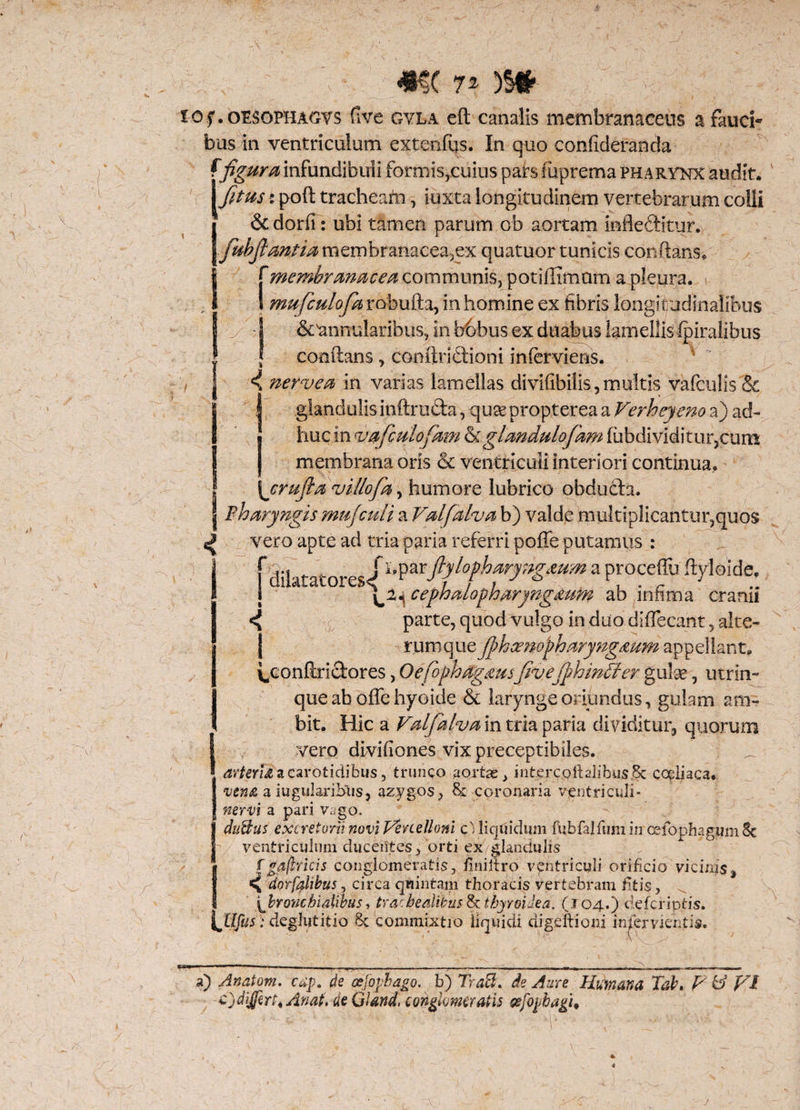 72
105. OESOPHAGVS ſive GVLA eſt canalis membranaceus a fauci-
bus in ventriculum extenſus. In quo conſideranda
figura infundibuli formis, cuius pars ſuprema PHARYNX audit.
ſitus: poſt tracheam, iuxta longitudinem vertebrarum colli
& dorſi: ubi tamen parum ob aortam inflectitur.
ſubſtantia membranacea, ex quatuor tunicis conſtans.
membranacea communis, potiſſimum a pleura.
muſculoſa robuſta, in homine ex fibris longitudinalibus
& annularibus, in bobus ex duabus lamellis ſpiralibus
conſtans, conſtrictioni inſerviens.
nervea in varias lamellas diviſibilis, multis vaſculis &
glandulis inſtructa, quæ propterea a Verheyeno a) ad-
huc in vaſculoſam & glanduloſam ſubdividitur, cum
membrana oris & ventriculi interiori continua.
cruſta villoſa, humore lubrico obducta.
Pharyngis muſculi a Valſalva b) valde multiplicantur, quos
vero apte ad tria paria referri poſſe putamus:
dilatatores 1. par ſtylopharyngæum a proceſſu ſtyloide.
2. cephalopharyngæum ab infima cranii
parte, quod vulgo in duo diſſecant, alte-
rumque ſphœnopharyngæum appellant.
conſtrictores, Oeſophagæus ſive ſphincter gulæ, utrin-
que ab oſſe hyoide & larynge oriundus, gulam am-
bit. Hic a Valſalva in tria paria dividitur, quorum
vero diviſiones vix preceptibiles.
arteriæ a carotidibus, trunco aortæ, intercoſtalibus & cœliaca.
venæ a iugularibus, azygos, & coronaria ventriculi.
nervi a pari vago.
ductus excretorii novi Vercelloni c) liquidum ſubſalſum in œſophagum &
ventriculum ducentes, orti ex glandulis
gaſtricis conglomeratis, ſiniſtro ventriculi orificio vicinis,
dorſalibus, circa quintam thoracis vertebram ſitis,
bronchialibus, trachealibus & thyroidea. (104.) deſcriptis.
Uſus: deglutitio & commixtio liquidi digeſtioni inſervientis.
a) Anatom. cap. de œſophago. b) Tract. de Aure Humana Tab. V & VI
c) diſſert. Anat. de Gland. conglomeratis œſophagi.